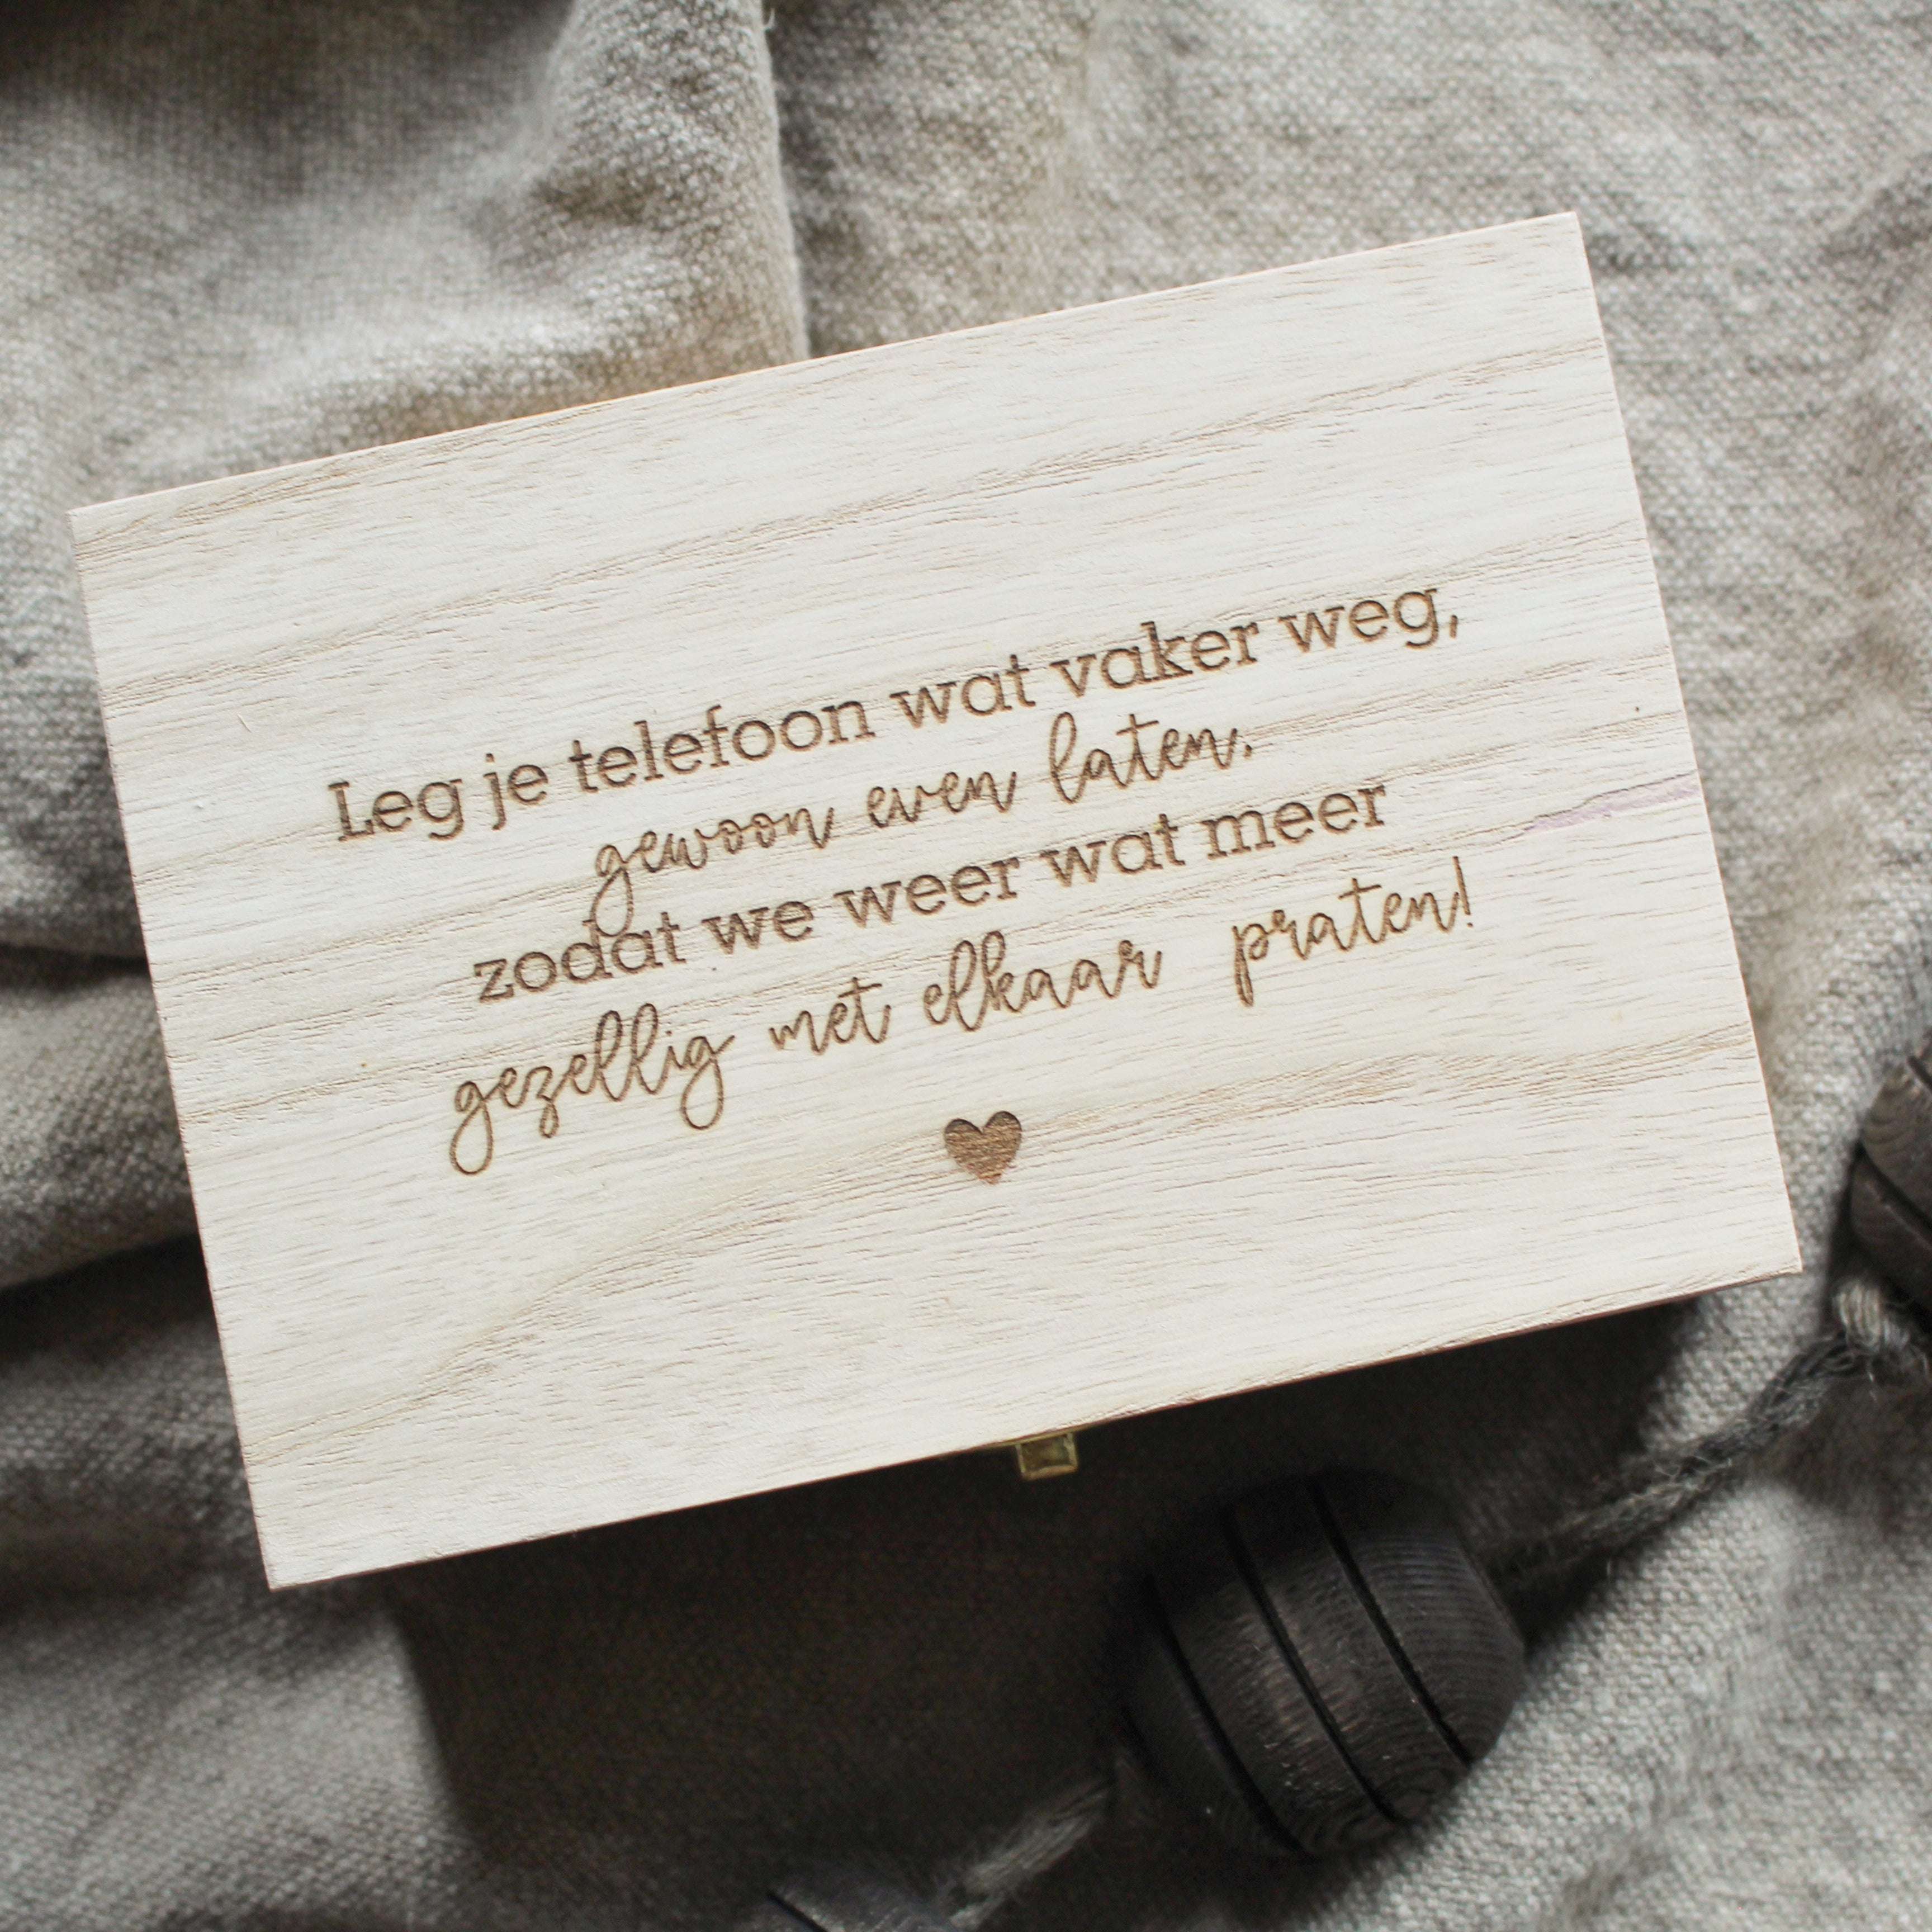 Leg je telefoon wat vaker weg,
gewoon even laten.
zodat we weer wat meer
gezellig met elkaar praten!